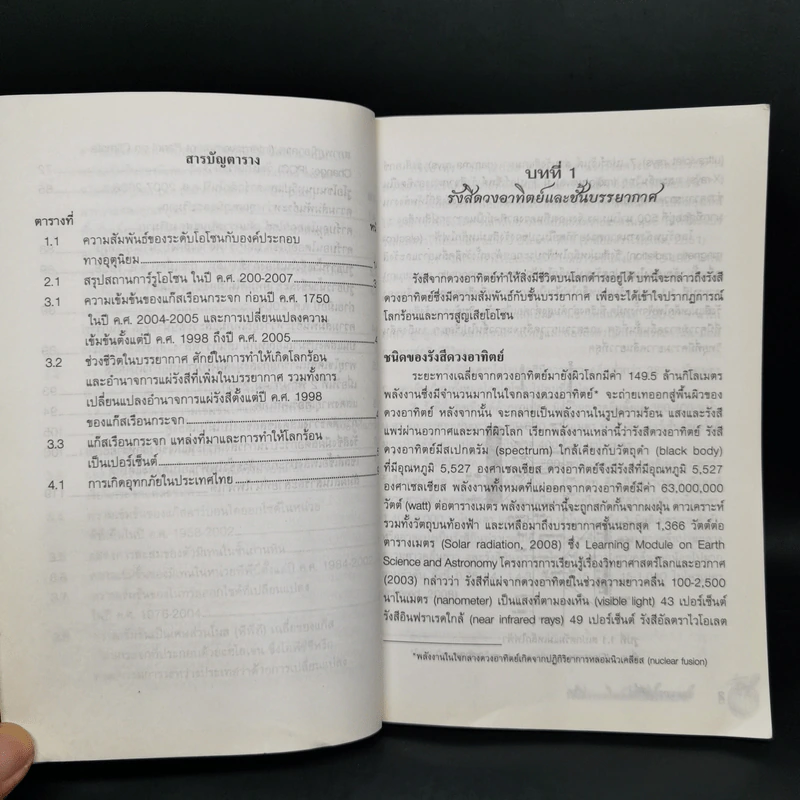 สารบัญตาราง
ตารางที่
1.1 ความสัมพันธ์ของระดับโอโซนกับองค์ประกอบ
ทางอุตุนิยม
2.1 สรุปสถานการ์รูโอโซน ในปี ค.ศ. 200-2007
3.1 ความเข้มข้นของแก๊สเรือนกระจก ก่อนปี ค.ศ. 1750
ในปี ค.ศ. 2004-2005 และการเปลี่ยนแปลงความ
เข้มข้นตั้งแต่ปี ค.ศ. 1998 ถึงปี ค.ศ. 2005
3.2 ช่วงชีวิตในบรรยากาศ ศักย์ในการทำให้เกิดโลกร้อน
และอำนาจการแผ่รังสีที่เพิ่มในบรรยากาศ รวมทั้งการ
เปลี่ยนแปลงอำนาจการแผ่รังสีตั้งแต่ปี ค.ศ. 1998
ของแก๊สเรือนกระจก
3.3 แก๊สเรือนกระจก แหล่งที่มาและการทำให้โลกร้อน
เป็นเปอร์เซ็นต์
4.1 การเกิดอุทกภัยในประเทศไทย
บทที่ 1
รังสีดวงอาทิตย์และชั้นบรรยากาศ
รังสีจากดวงอาทิตย์ทำให้สิ่งมีชีวิตบนโลกดำรงอยู่ได้ บทนี้จะกล่าวถึงรังสี
ดวงอาทิตย์ซึ่งมีความสัมพันธ์กับชั้นบรรยากาศ เพื่อจะได้เข้าใจปรากฏการณ์
โลกร้อนและการสูญเสียโอโซน
ชนิดของรังสีดวงอาทิตย์
ระยะทางเฉลี่ยจากดวงอาทิตย์มายังผิวโลกมีค่า 149.5 ล้านกิโลเมตร
พลังงานซึ่งมีจำนวนมากในใจกลางดวงอาทิตย์* จะถ่ายเทออกสู่พื้นผิวของ
ดวงอาทิตย์ หลังจากนั้น จะกลายเป็นพลังงานในรูปความร้อน แสงและรังสี
แพร่ผ่านอวกาศและมาที่ผิวโลก เรียกพลังงานเหล่านี้ว่ารังสีดวงอาทิตย์ รังสี
ดวงอาทิตย์มีสเปกตรัม (spectrum) ใกล้เคียงกับวัตถุดำ (black body)
ที่มีอุณหภูมิ 5,527 องศาเซลเซียส ดวงอาทิตย์จึงมีรังสีที่มีอุณหภูมิ 5,527
องศาเซลเซียส พลังงานทั้งหมดที่แผ่ออกจากดวงอาทิตย์มีค่า 63,000,000
วัตต์ (watt) ต่อตารางเมตร พลังงานเหล่านี้จะถูกสกัดกั้นจากผงฝุ่น ดาวเคราะห์
รวมทั้งวัตถุบนท้องฟ้า และเหลือมาถึงบรรยากาศชั้นนอกสุด 1,366 วัตต์ต่อ
ตารางเมตร (Solar radiation, 2008) ซึ่ง Learning Module on Earth
Science and Astronomy โครงการการเรียนรู้เรื่องวิทยาศาสตร์โลกและอวกาศ
(2003) กล่าวว่า รังสีที่แผ่จากดวงอาทิตย์ในช่วงความยาวคลื่น 100-2,500
นาโนเมตร (nanometer) เป็นแสงที่ตามองเห็น (visible light) 43 เปอร์เซ็นต์
รังสีอินฟราเรดใกล้ (near infrared rays) 49 เปอร์เซ็นต์ รังสีอัลตราไวโอเลต
*พลังงานในใจกลางดวงอาทิตย์เกิดจากปฏิกิริยาการหลอมนิวเคลียส (nuclear fusion)